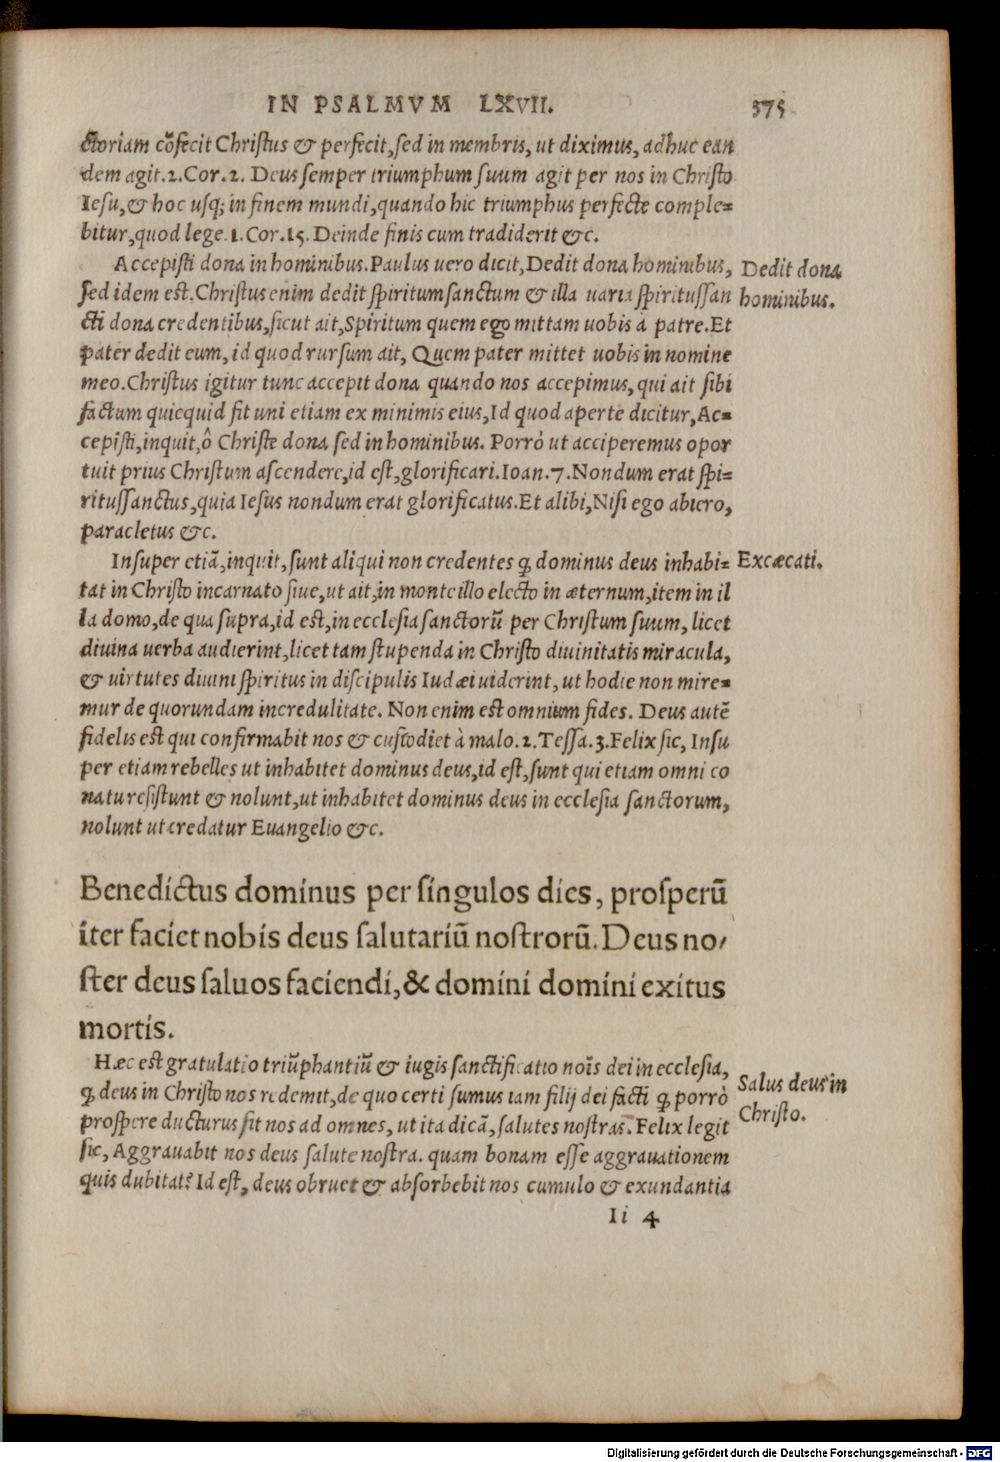 IN PSALMVM LXVII. 375
ctoriam cõfecit Christus & perfecit, sed in membris, ut diximus, adhuc ean
dem agit. 2. Cor. 2. Deus semper triumphum suum agit per nos in Christo
Iesu, & hoc usq; in finem mundi, quando hic triumphus perfecte comple-
bitur, quod lege. 1. Cor. 15. Deinde finis cum tradiderit &c.
Accepisti dona in hominibus. Paulus uero dicit, Dedit dona hominibus,
Dedit dona
sed idem est. Christus enim dedit spiritumsanctum & illa uaria spiritussan
hominibus.
cti dona credentibus, sicut ait, Spiritum quem ego mittam uobis à patre. Et
pater dedit eum, id quod rursum ait, Quem pater mittet uobis in nomine
meo. Christus igitur tunc accepit dona quando nos accepimus, qui ait sibi
factum quicquid fit uni etiam ex minimis eius, Id quod aperte dicitur, Ac-
cepisti, inquit, ô Christe dona sed in hominibus. Porrò ut acciperemus opor
tuit prius Christum ascendere, id est, glorificari. Ioan. 7. Nondum erat spi-
ritussanctus, quia Iesus nondum erat glorificatus. Et alibi, Nisi ego abiero,
paracletus &c.
Insuper etiã, inquit, sunt aliqui non credentes ꝙ dominus deus inhabi-
Excæcati.
tat in Christo incarnato siue, ut ait, in monte illo electo in æternum, item in il
la domo, de qua supra, id est, in ecclesia sanctorũ per Christum suum, licet
diuina uerba audierint, licet tam stupenda in Christo diuinitatis miracula,
& uirtutes diuini spiritus in discipulis Iudæi uiderint, ut hodie non mire-
mur de quorundam incredulitate. Non enim est omnium fides. Deus autẽ
fidelis est qui confirmabit nos & custodiet à malo. 2. Tessa. 3. Felix sic, Insu
per etiam rebelles ut inhabitet dominus deus, id est, sunt qui etiam omni co
natu resistunt & nolunt, ut inhabitet dominus deus in ecclesia sanctorum,
nolunt ut credatur Euangelio &c.
Benedictus dominus per singulos dies, prosperũ
iter faciet nobis deus salutariũ nostrorũ. Deus no/
ster deus saluos faciendi, & domini domini exitus
mortis.
Hæc est gratulatio triũphantiũ & iugis sanctificatio noĩs dei in ecclesia,
ꝙ deus in Christo nos redemit, de quo certi sumus iam filij dei facti ꝙ porrò
Salus deus in
prospere ducturus sit nos ad omnes, ut ita dicã, salutes nostras. Felix legit
Christo.
sic, Aggrauabit nos deus salute nostra. quam bonam esse aggrauationem
quis dubitat? Id est, deus obruet & absorbebit nos cumulo & exundantia
Ii 4
Digitalisierung gefördert durch die Deutsche Forschungsgemeinschaft - DFG